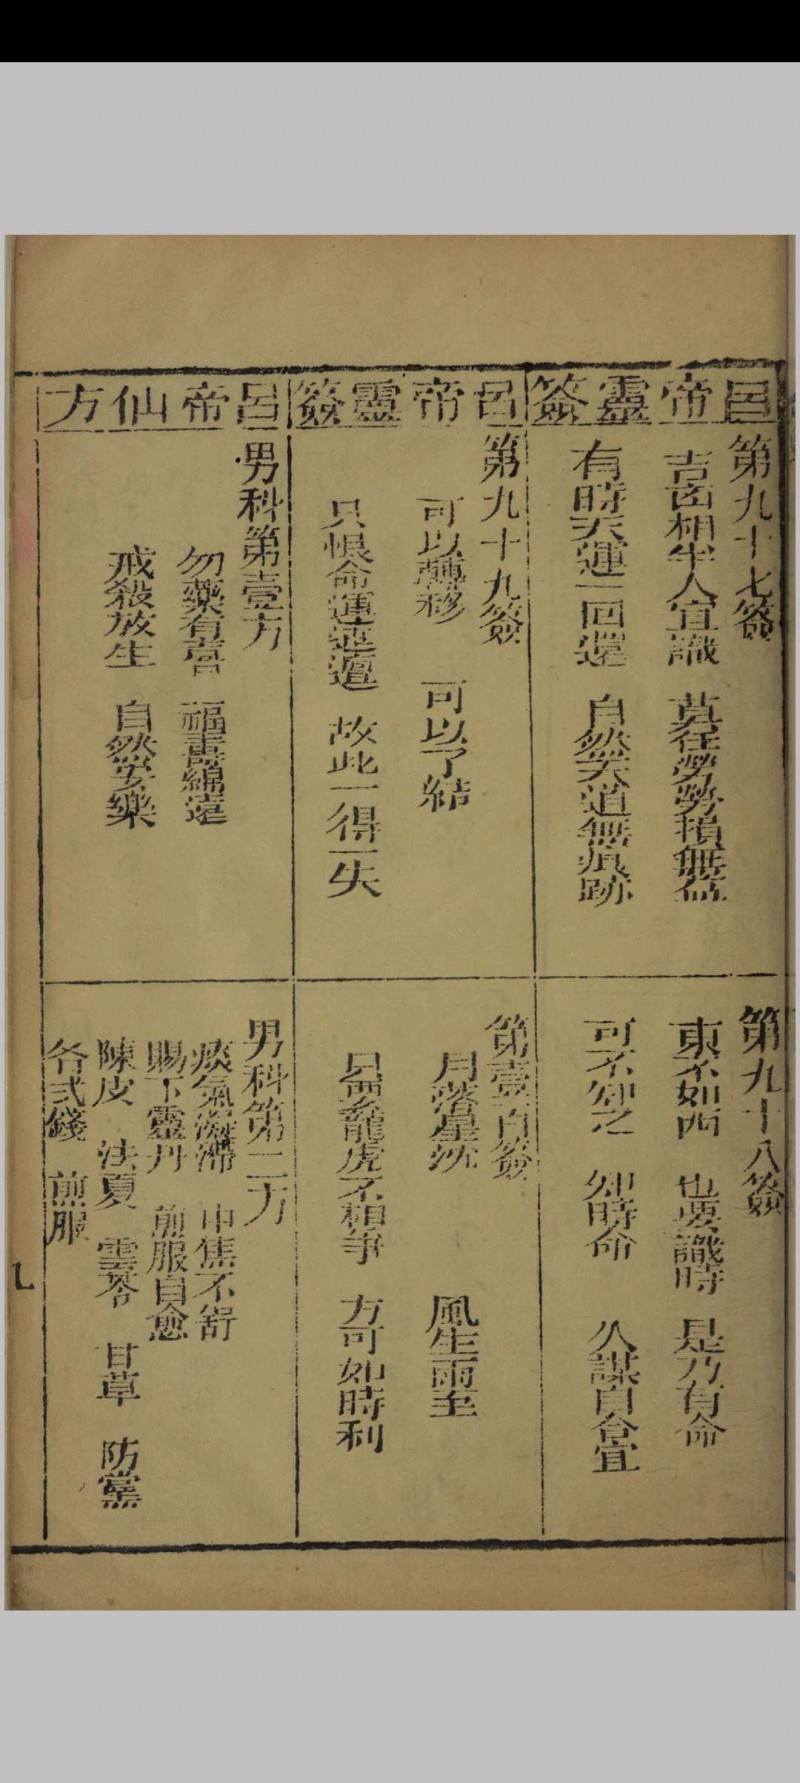 呂帝靈簽
第九十七簽
吉凶相半人宜識 莫徃勞勞積無益
有時天運一回還 自然天道無痕跡
第九十八簽
東不如西 也要識時 是乃有命
可不知之 知時命 久謀自合宜
呂帝靈簽
第九十九簽
可以轉移 可以了結
只恨命運迍邅 故此一得一失
第壹百簽
月落星沈 風生雨至
只要龍虎不相爭 方可如時利
呂帝仙方
男科第壹方
勿藥有喜 福壽綿遠
戒殺放生 自然安樂
男科第二方
痰氣凝滯 中焦不舒
賜下靈丹 煎服自愈
陳皮 法夏 雲苓 甘草 防黨
各弍錢 煎服